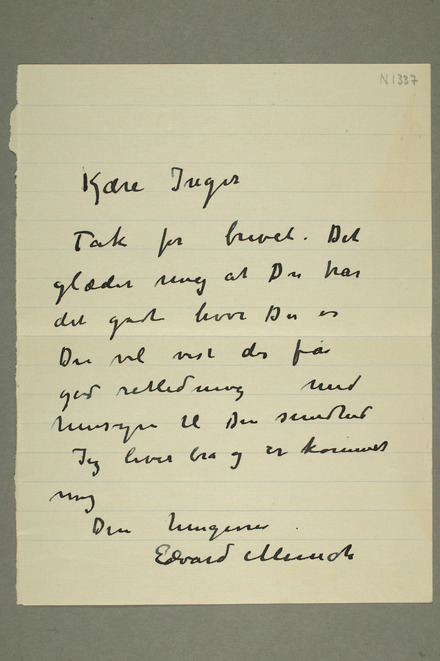 N1337
Kjære Inger
Tak for brevet. Det
glæder mig at Du har
det godt hvor Du er
Du vil vist der få
god retledning med
hensyn til Din sundhed
Jeg lever bra og er kommet
mig
Din hengivne
Edvard Munch